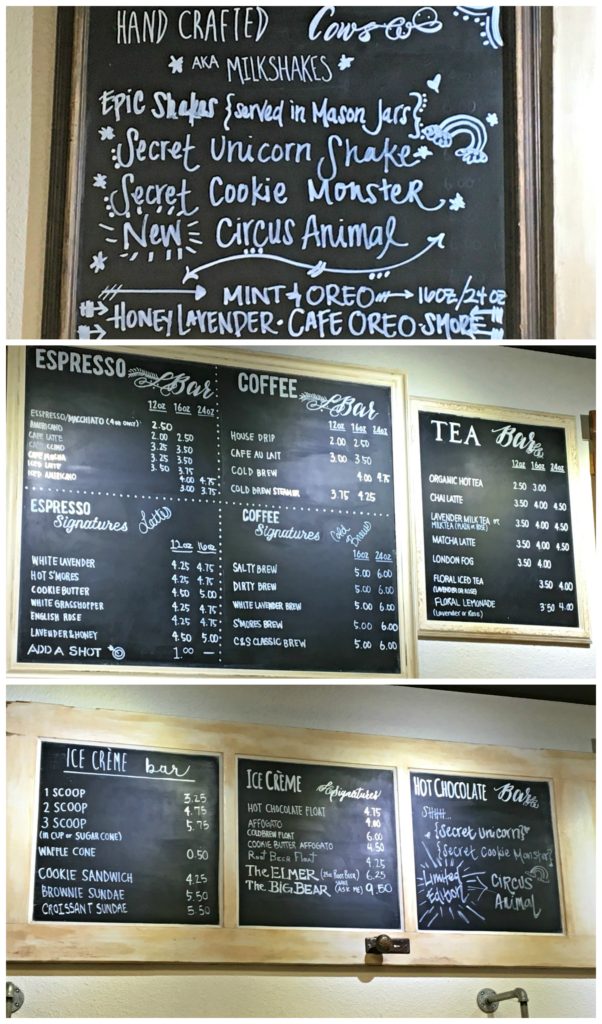 HAND CRAFTED Cows
AKA MILKSHAKES
EPIC Shakes {served in Mason Jars}
Secret Unicorn Shake
Secret Cookie Monster
New Circus Animal
MINT & OREO 16oz/24oz
HONEY LAVENDER · CAFE OREO · SMORE
ESPRESSO Bar
12oz 16oz 24oz
ESSPRESSO/MACCHIATO (4oz only) 2.50
AMERICANO 2.00 2.50
CAFE LATTE 3.25 3.50
3.25 3.50
CAFE MOCHA 3.50 3.75
ICED LATTE 4.00 4.75
ICED AMERICANO 3.00 3.75
ESPRESSO
Signatures Latte
12oz 16oz
WHITE LAVENDER 4.25 4.75
HOT S'MORES 4.25 4.75
COOKIE BUTTER 4.50 5.00
WHITE GRASSHOPPER 4.25 4.75
ENGLISH ROSE 4.25 4.75
LAVENDER & HONEY 4.50 5.00
ADD A SHOT 1.00 —
COFFEE Bar
12oz 16oz 24oz
HOUSE DRIP 2.00 2.50
CAFE AU LAIT 3.00 3.50
COLD BREW 4.00 4.75
COLD BREW STEAMER 3.75 4.25
COFFEE
Signatures Cold Brew
16oz 24oz
SALTY BREW 5.00 6.00
DIRTY BREW 5.00 6.00
WHITE LAVENDER BREW 5.00 6.00
S'MORES BREW 5.00 6.00
C&S CLASSIC BREW 5.00 6.00
TEA Bar
12oz 16oz 24oz
ORGANIC HOT TEA 2.50 3.00
CHAI LATTE 3.50 4.00 4.50
LAVENDER MILK TEA or
MILKTEA (PLAIN or ROSE) 3.50 4.00 4.50
MATCHA LATTE 3.50 4.00 4.50
LONDON FOG 3.50 4.00
FLORAL ICED TEA 3.50 4.00
(LAVENDER or ROSE)
FLORAL LEMONADE 3.50 4.00
(Lavender or Rose)
ICE CRÈME bar
1 SCOOP 3.25
2 SCOOP 4.75
3 SCOOP 5.75
(IN CUP or SUGAR CONE)
WAFFLE CONE 0.50
COOKIE SANDWICH 4.25
BROWNIE SUNDAE 5.50
CROISSANT SUNDAE 5.50
ICE CRÈME Signatures
HOT CHOCOLATE FLOAT 4.75
AFFOGATO 4.00
COLDBREW FLOAT 6.00
COOKIE BUTTER AFFOGATO 4.50
Root Beer Float 4.25
The ELMER 6.25
The BIG BEAR (ASK ME) 9.50
HOT CHOCOLATE Bar
Shhh...
{Secret Unicorn}
{Secret Cookie Monster}
Limited Edition!
CIRCUS
ANIMAL